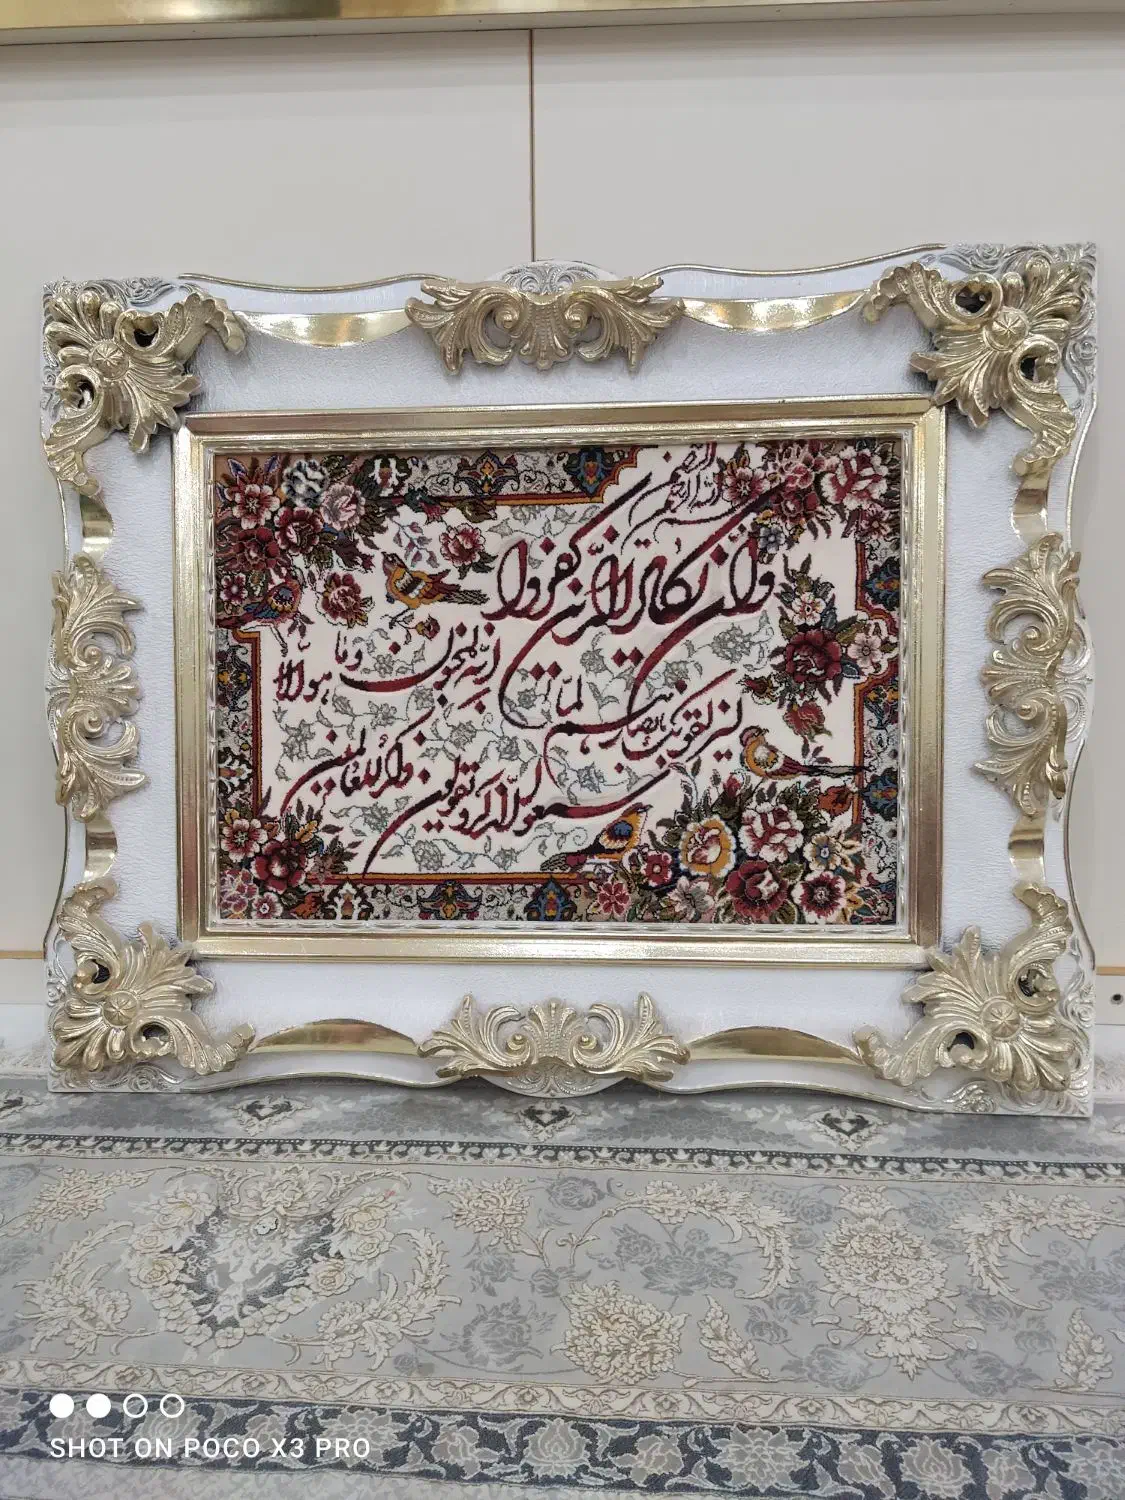 بسم الله الرحمن الرحیم
وَاِنْ یَکادُ الَّذینَ کَفَروا
لَیُزلِقونَکَ بِاَبصارِهِم لَمّا
سَمِعُوا الذِّکرَ وَ یَقولونَ
اِنَّهُ لَمَجنونٌ وَ ما
هُوَ اِلّا
ذِکرٌ لِلعالَمین
SHOT ON POCO X3 PRO